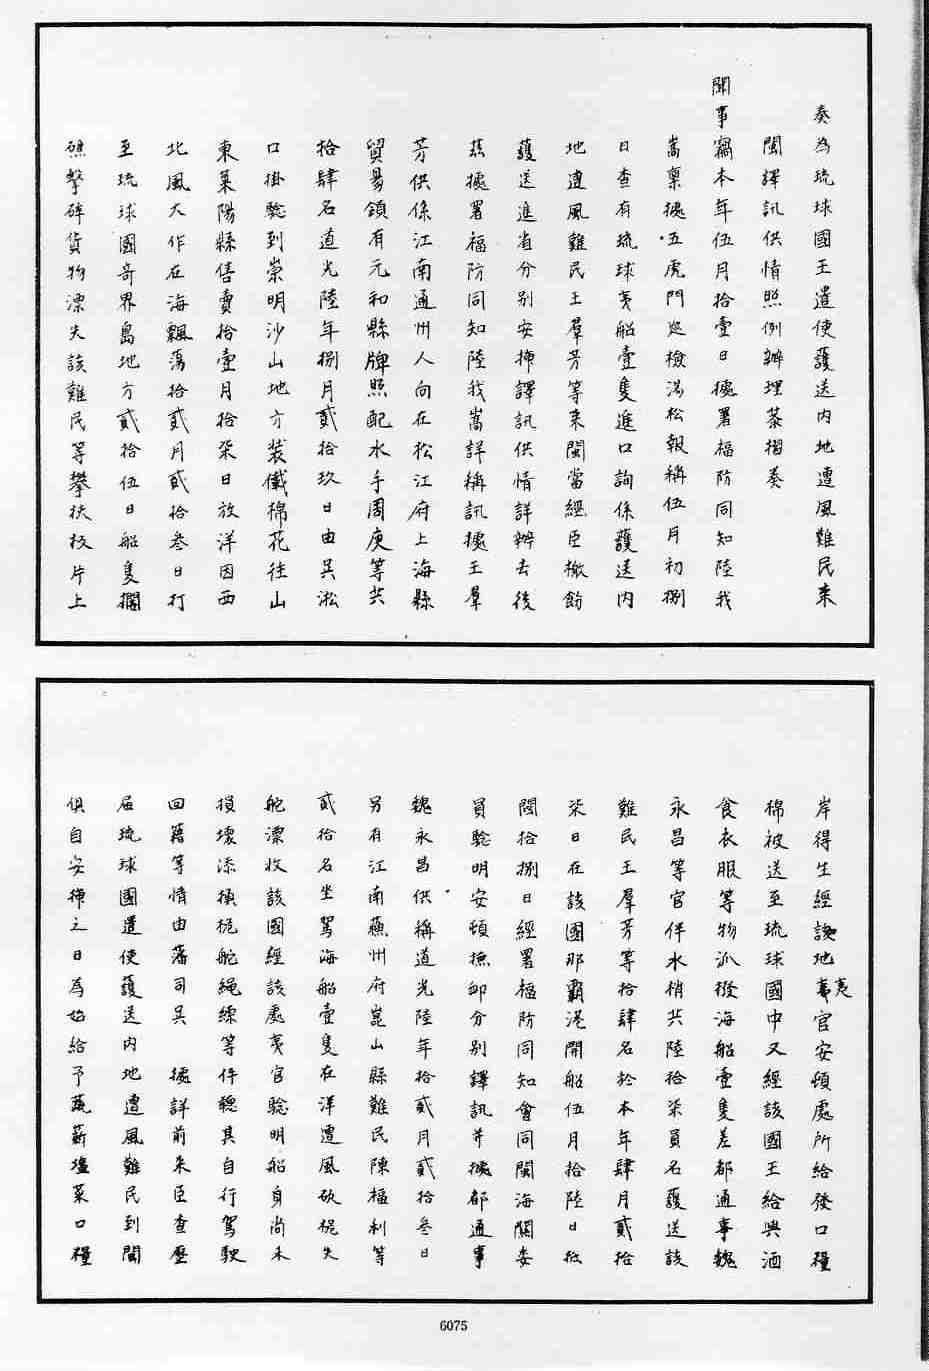 奏為琉球國王遣使護送內地遭風難民來
閩譯訊供情照例辦理恭摺奏
聞事竊本年伍月拾壹日據署福防同知陸我
嵩稟據五虎門巡檢馮松報稱伍月初捌
日查有琉球夷船壹隻進口詢係護送內
地遭風難民王羣芳等來閩當經臣檄飭
護送進省分別安揷譯訊供情詳辦去後
茲據署福防同知陸我嵩詳稱訊據王羣
芳供係江南通州人向在松江府上海縣
貿易領有元和縣牌照配水手周庚等共
拾肆名道光陸年捌月貳拾玖日由吳淞
口掛驗到崇明沙山地方裝儎棉花往山
東萊陽縣售賣拾壹月拾柒日放洋因西
北風大作在海飄蕩拾貳月貳拾叁日打
至琉球國奇界島地方貳拾伍日船隻擱
礁擊碎貨物漂失該難民等攀扶板片上
岸得生經該地夷官安頓處所給發口糧
棉被送至琉球國中又經該國王給與酒
食衣服等物派撥海船壹隻差都通事魏
永昌等官伴水梢共陸拾柒員名護送該
難民王羣芳等拾肆名於本年肆月貳拾
柒日在該國那霸港開船伍月拾陸日抵
閩拾捌日經署福防同知會同閩海關委
員驗明安頓撫卹分別譯訊并據都通事
魏永昌供稱道光陸年拾貳月貳拾叁日
另有江南蘇州府崑山縣難民陳福利等
貳拾名坐駕海船壹隻在洋遭風砍桅失
舵漂收該國經該處夷官驗明船身尚未
損壞添換桅舵繩縤等件聽其自行駕駛
回籍等情由藩司吳 據詳前來臣查歷
屆琉球國遣使護送內地遭風難民到閩
俱自安揷之日為始給予蔬薪塩菜口糧
6075